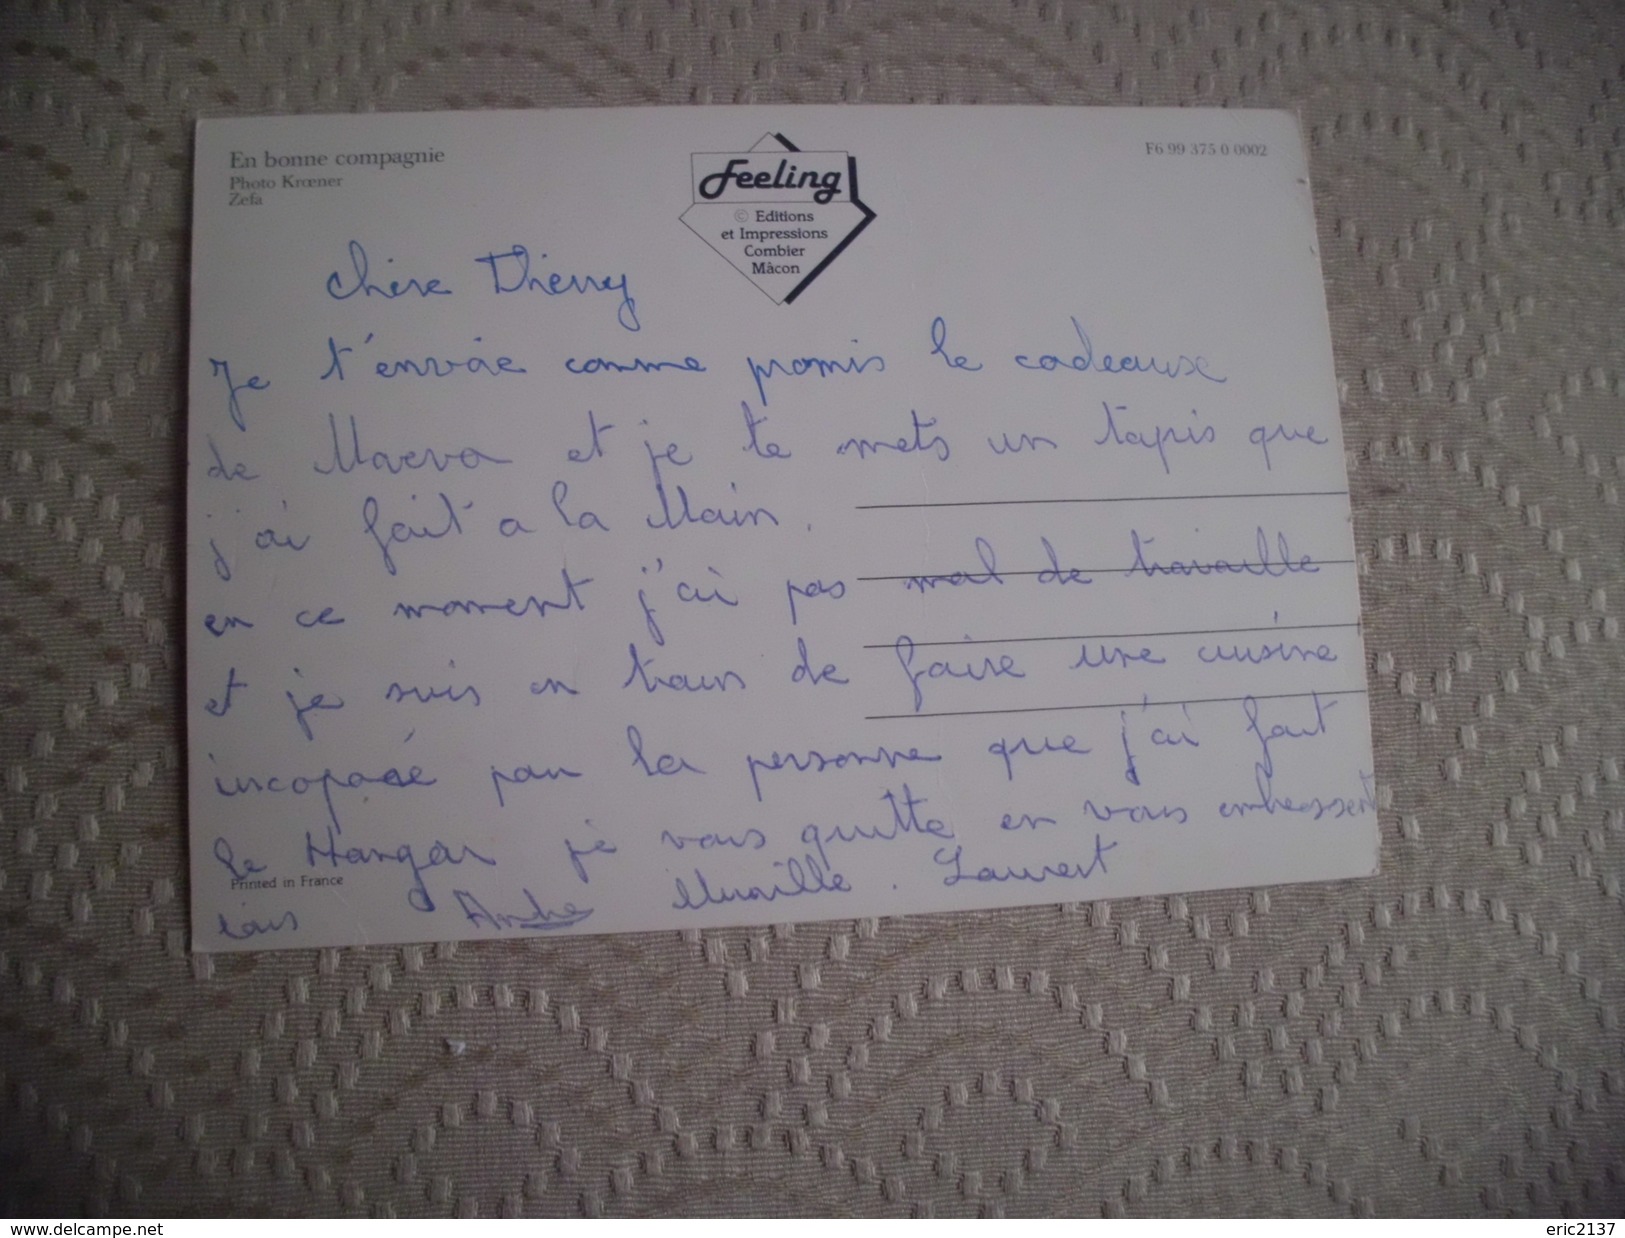 En bonne compagnie
Photo Krœner
Zefa
Feeling
© Editions
et Impressions
Combier
Mâcon
F6 99 375 0 0002
chère Thierry
Je t'envoie comme promis le cadeause
de Maeva et je te mets un tapis que
j'ai fait a la Main.
en ce moment j'ai pas mal de travaille
et je suis en train de faire une cuisine
par la personne que j'ai fait
le Hangar je vous quitte en vous embrassent
Printed in France
André . Laurent
www.delcampe.net
eric2137